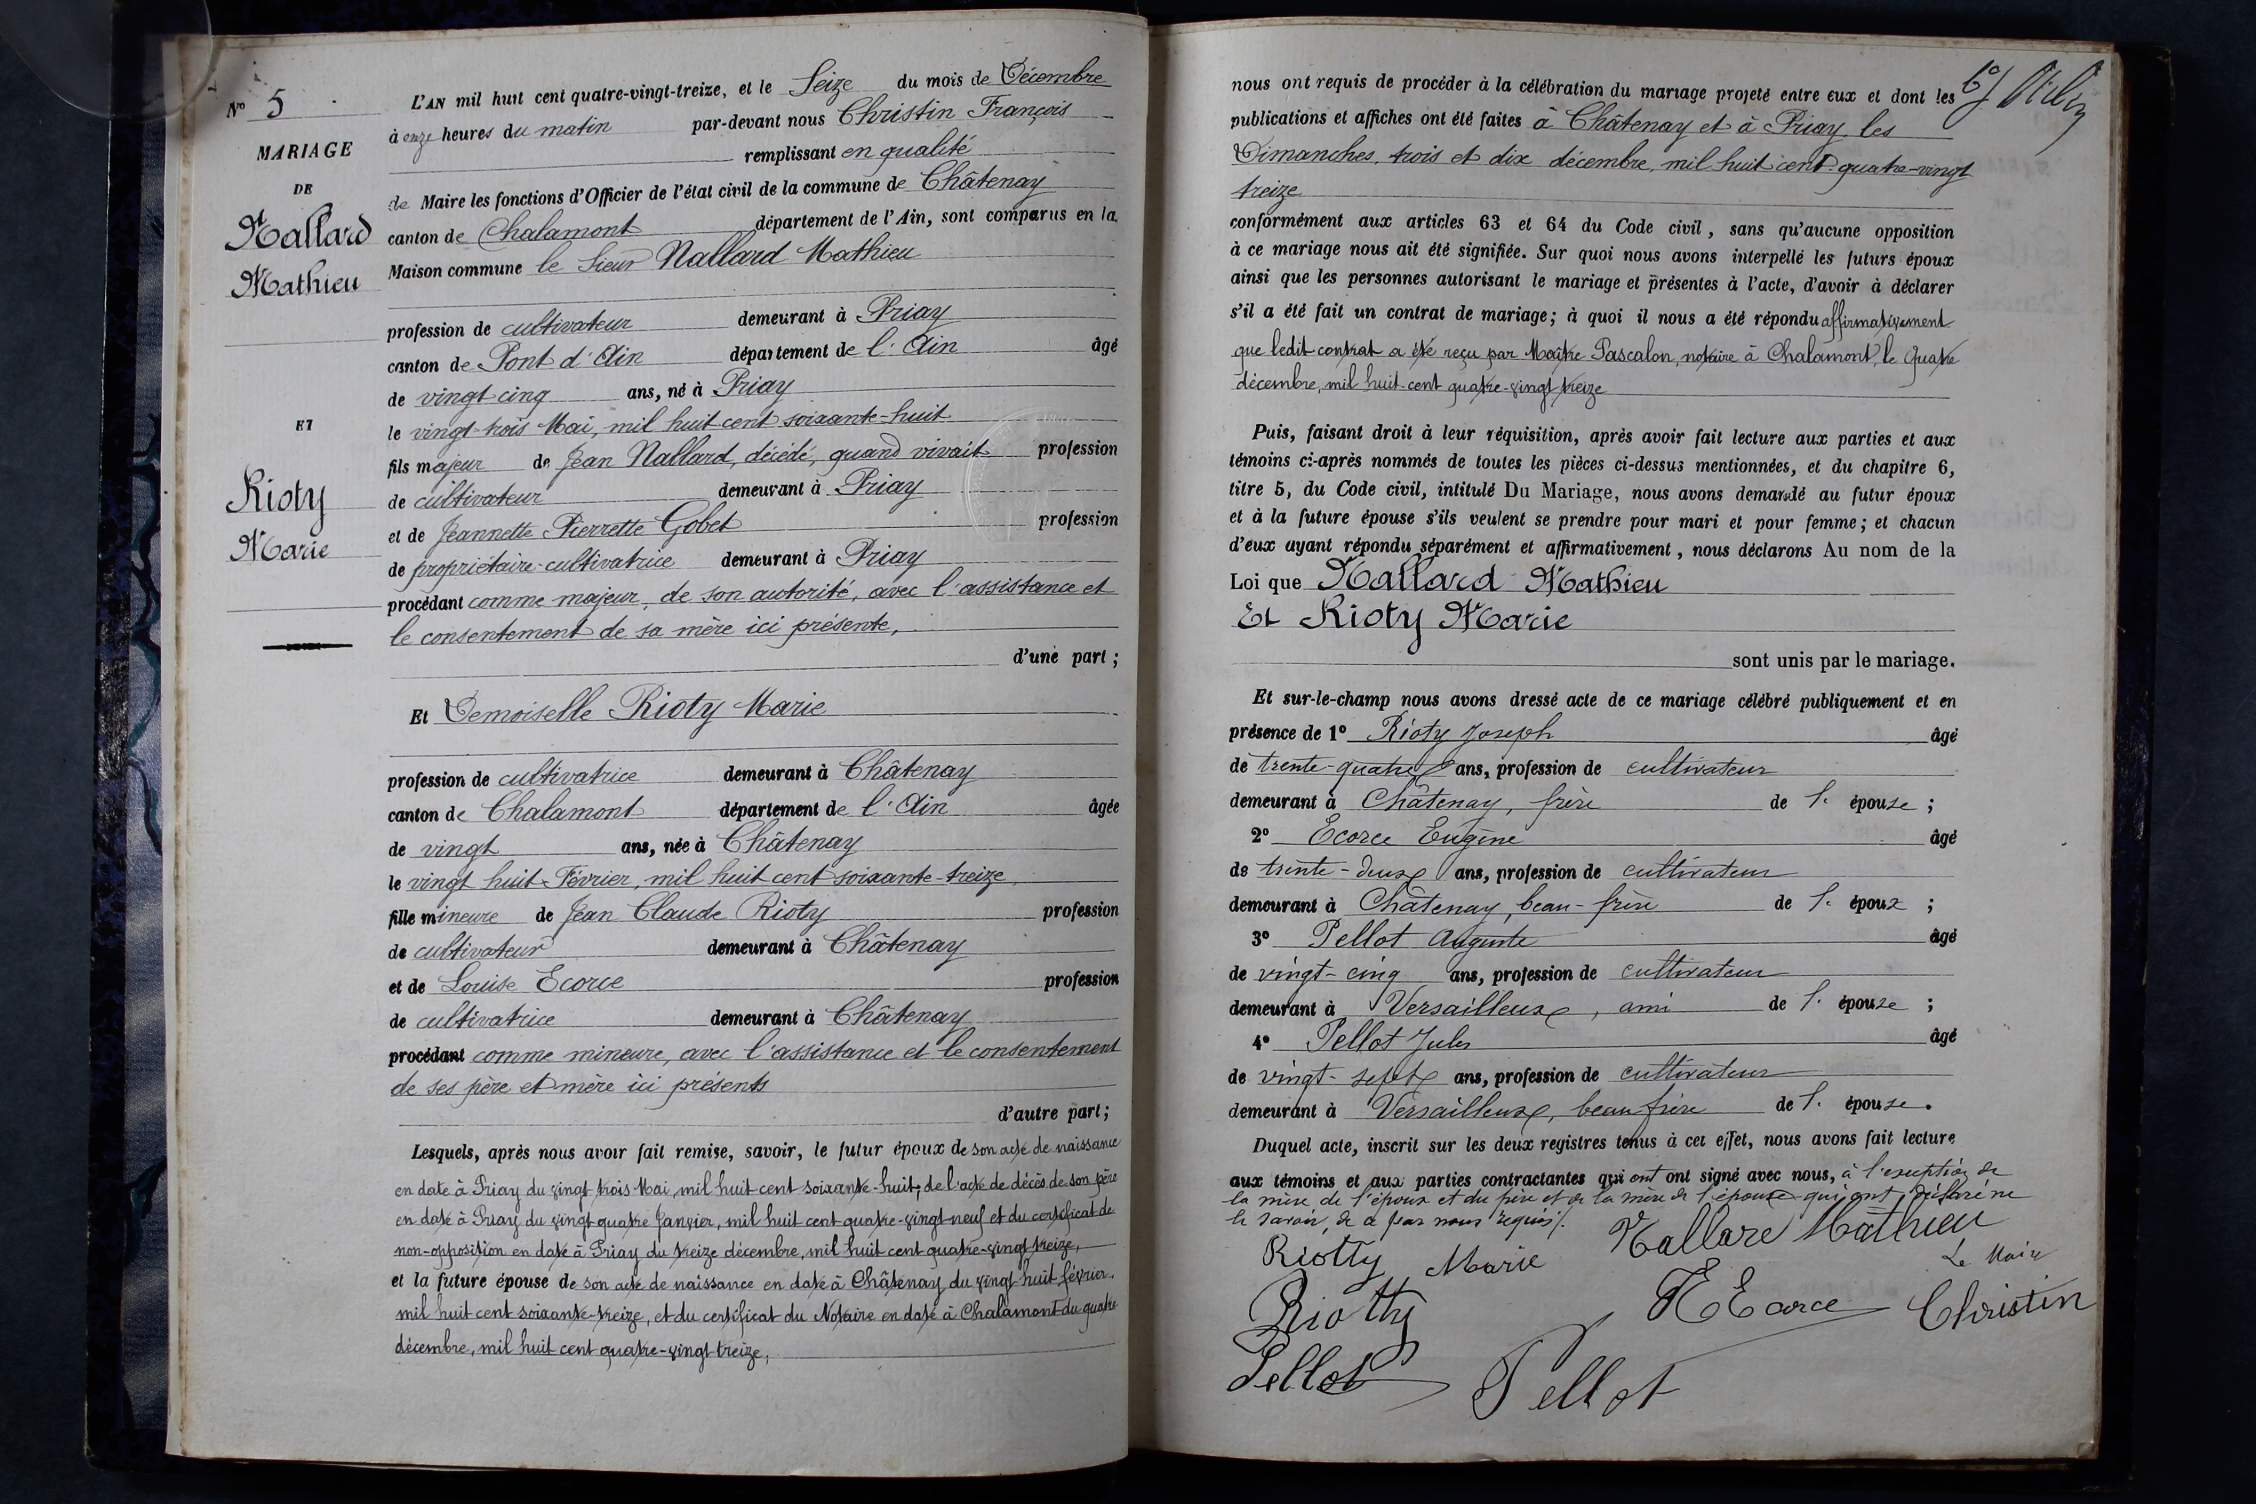 Nº 5
MARIAGE
DE
Nallard
Mathieu
ET
Rioty
Marie
L'AN mil huit cent quatre-vingt-treize, et le Seize du mois de Décembre
à onze heures du matin par-devant nous Christin François
remplissant en qualité
de Maire les fonctions d'Officier de l'état civil de la commune de Châtenay
canton de Chalamont département de l'Ain, sont comparus en la
Maison commune le Sieur Nallard Mathieu
profession de cultivateur demeurant à Priay
canton de Pont d'Ain département de l'Ain âgé
de vingt cinq ans, né à Priay
le vingt-trois Mai, mil huit cent soixante-huit
fils majeur de Jean Nallard, décédé, quand vivait profession
de cultivateur demeurant à Priay
et de Jeannette Pierrette Gobet profession
de propriétaire-cultivatrice demeurant à Priay
procédant comme majeur, de son autorité, avec l'assistance et
le consentement de sa mère ici présente,
d'une part ;
Et Demoiselle Rioty Marie
profession de cultivatrice demeurant à Châtenay
canton de Chalamont département de l'Ain âgée
de vingt ans, née à Châtenay
le vingt huit Février, mil huit cent soixante-treize
fille mineure de Jean Claude Rioty profession
de cultivateur demeurant à Châtenay
et de Louise Ecorce profession
de cultivatrice demeurant à Châtenay
procédant comme mineure, avec l'assistance et le consentement
de ses père et mère ici présents
d'autre part ;
Lesquels, après nous avoir fait remise, savoir, le futur époux de son acte de naissance
en date à Priay du vingt trois Mai, mil huit cent soixante-huit, de l'acte de décès de son père
en date à Priay du vingt quatre Janvier, mil huit cent quatre-vingt-neuf et du certificat de
non-opposition en date à Priay du treize décembre, mil huit cent quatre-vingt treize,
et la future épouse de son acte de naissance en date à Châtenay du vingt-huit février
mil huit cent soixante-treize, et du certificat du Notaire en date à Chalamont du quatre
décembre, mil huit cent quatre-vingt treize,
nous ont requis de procéder à la célébration du mariage projeté entre eux et dont les
publications et affiches ont été faites à Châtenay et à Priay les
Dimanches, trois et dix décembre, mil huit cent quatre-vingt
treize
conformément aux articles 63 et 64 du Code civil, sans qu'aucune opposition
à ce mariage nous ait été signifiée. Sur quoi nous avons interpellé les futurs époux
ainsi que les personnes autorisant le mariage et présentes à l'acte, d'avoir à déclarer
s'il a été fait un contrat de mariage; à quoi il nous a été répondu affirmativement
que ledit contrat a été reçu par Maître Pascalon, notaire à Chalamont, le quatre
décembre, mil huit-cent quatre-vingt treize
Puis, faisant droit à leur réquisition, après avoir fait lecture aux parties et aux
témoins ci-après nommés de toutes les pièces ci-dessus mentionnées, et du chapitre 6,
titre 5, du Code civil, intitulé Du Mariage, nous avons demandé au futur époux
et à la future épouse s'ils veulent se prendre pour mari et pour femme; et chacun
d'eux ayant répondu séparément et affirmativement, nous déclarons Au nom de la
Loi que Nallard Mathieu
Et Rioty Marie
sont unis par le mariage.
Et sur-le-champ nous avons dressé acte de ce mariage célébré publiquement et en
présence de 1º Rioty Joseph âgé
de trente-quatre ans, profession de cultivateur
demeurant à Châtenay, frère de l' épouse ;
2º Ecorce Eugène âgé
de trente-deux ans, profession de cultivateur
demeurant à Châtenay, beau-frère de l' époux ;
3º Pellot Auguste âgé
de vingt-cinq ans, profession de cultivateur
demeurant à Versailleux, ami de l' épouse ;
4º Pellot Jules âgé
de vingt-sept ans, profession de cultivateur
demeurant à Versailleux, beau frère de l' épouse.
Duquel acte, inscrit sur les deux registres tenus à cet effet, nous avons fait lecture
aux témoins et aux parties contractantes qui ont ont signé avec nous, à l'exception de
la mère de l'époux et du père et de la mère de l'épouse qui ont déclaré ne
le savoir, de ce par nous requis.
Riotty Marie Nallard Mathieu
Le Maire
Riotty Ecorce Christin
Pellot Pellot